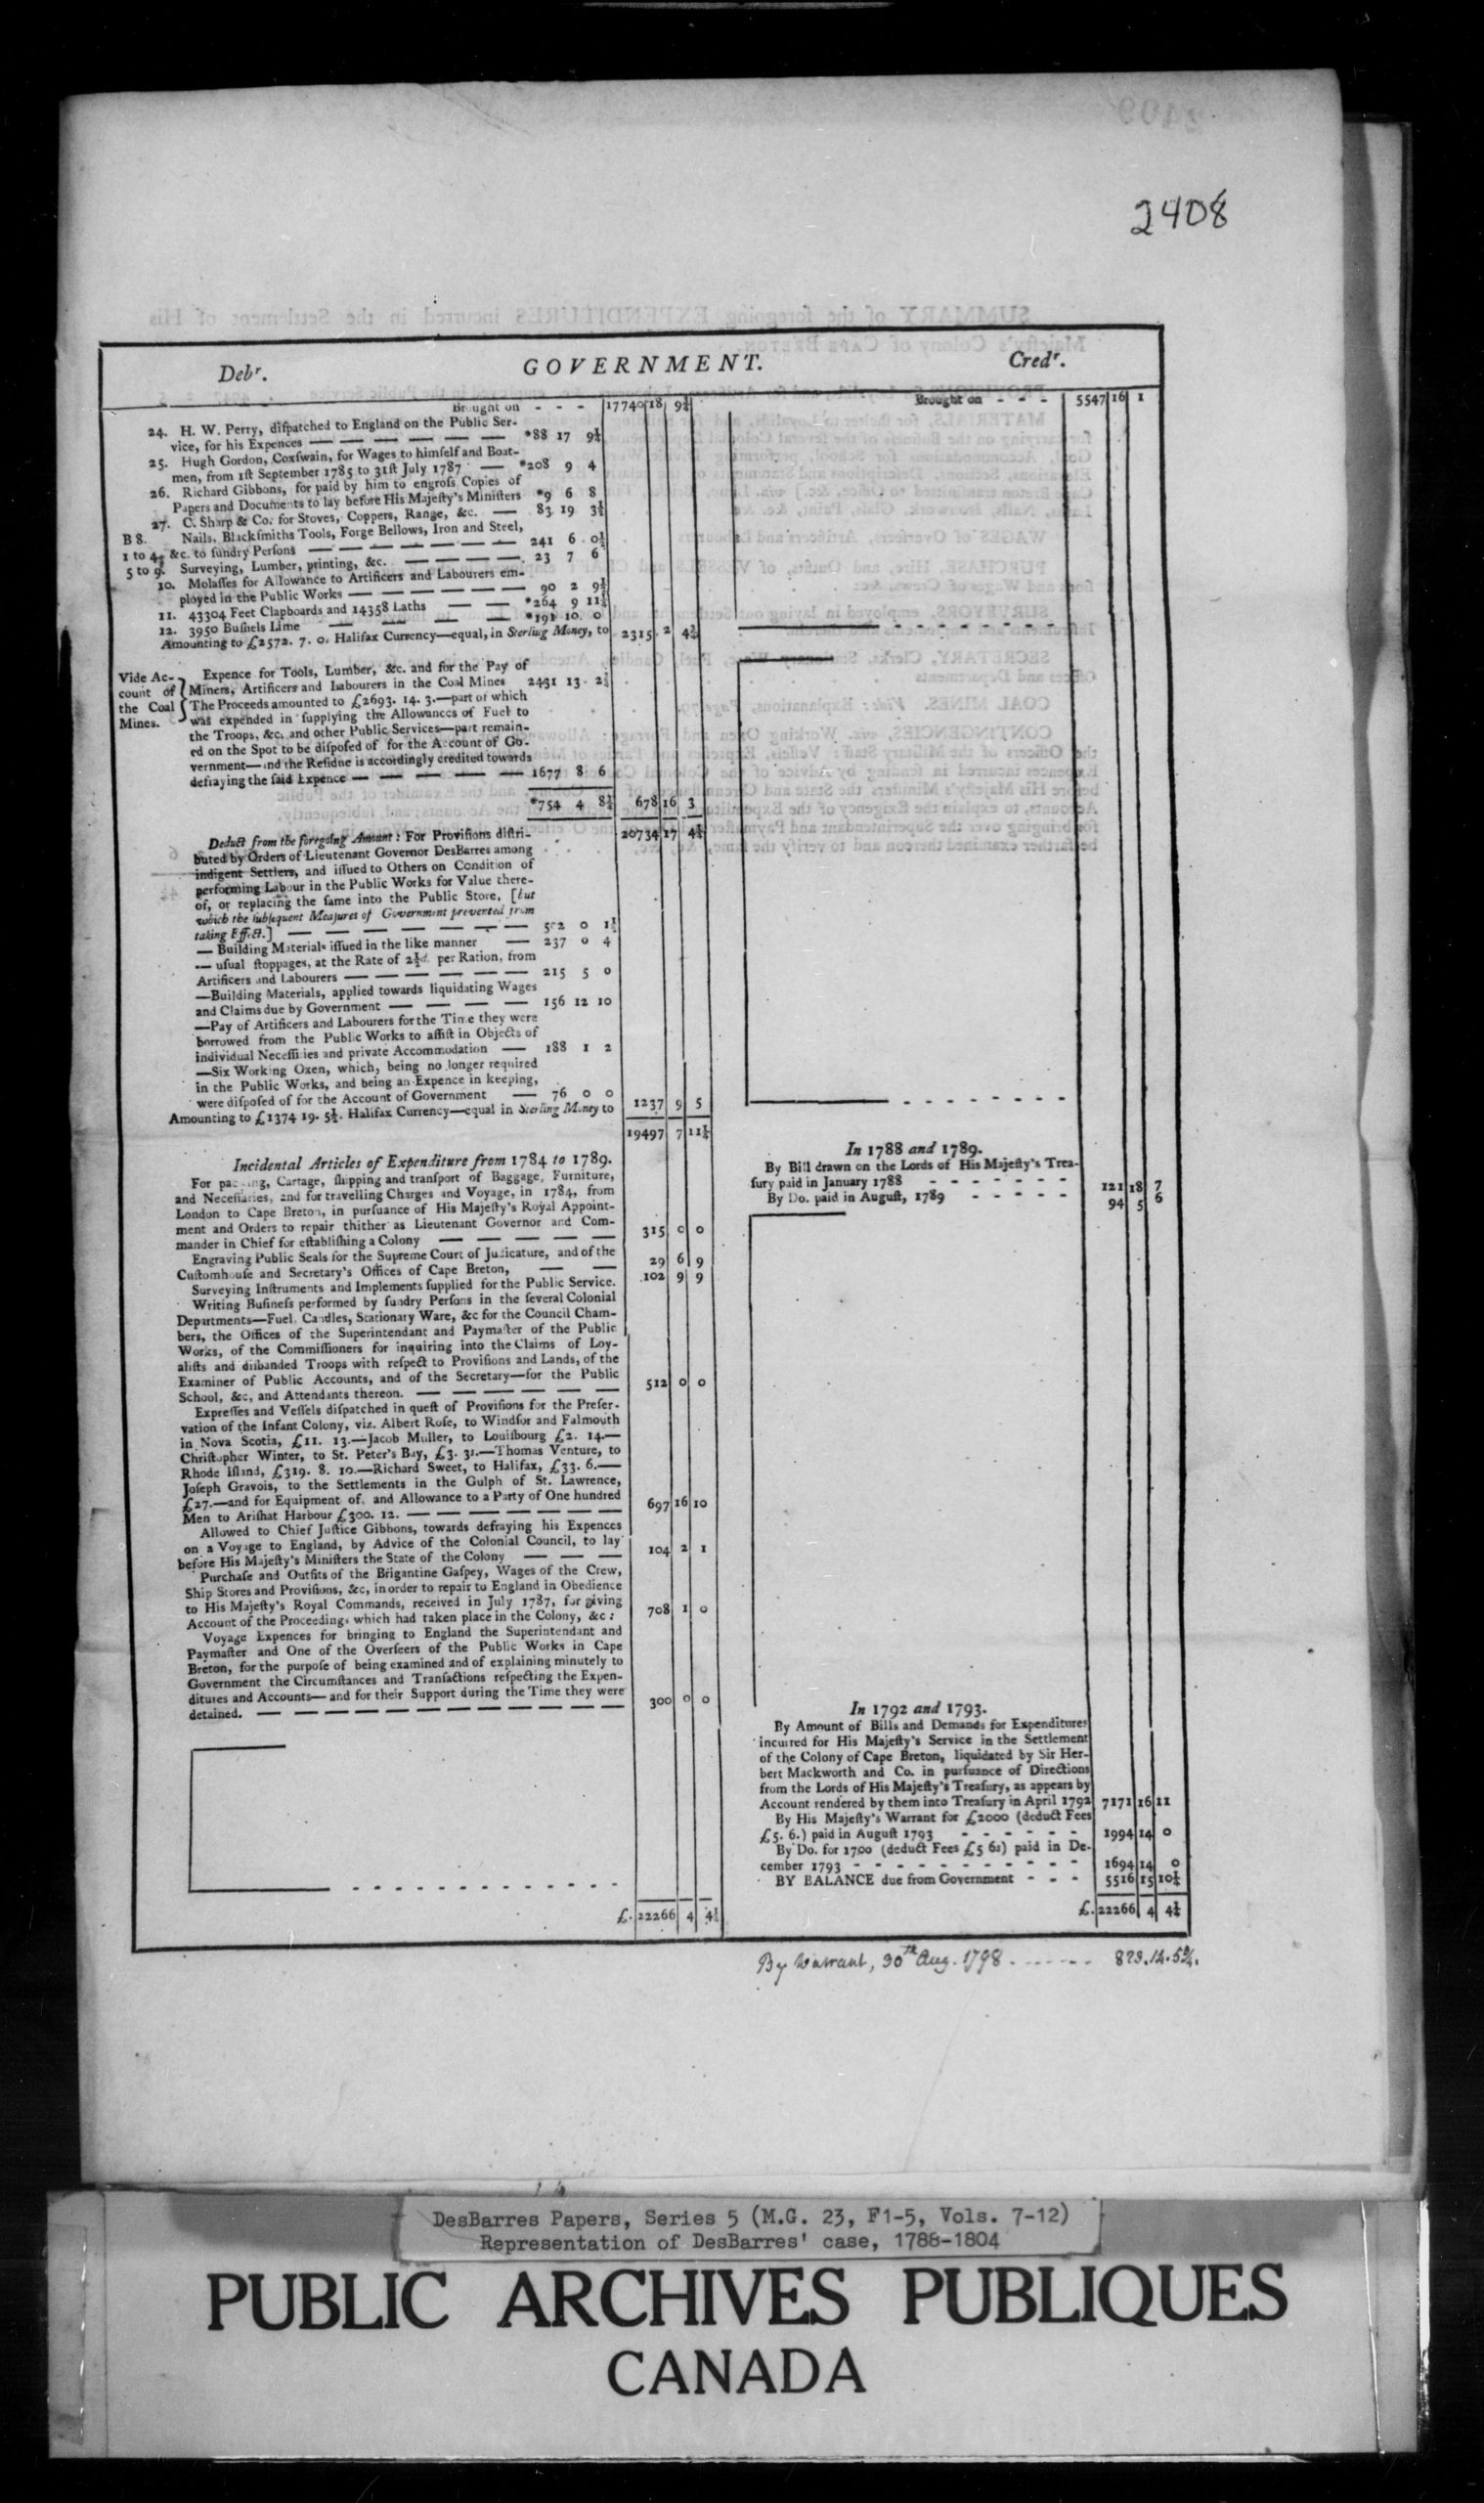 2408
Debʳ. GOVERNMENT. Credʳ.
Brought on - - - 17740 18 9¾
24. H. W. Perry, diſpatched to England on the Public Ser-
vice, for his Expences — — — — — — *88 17 9½
25. Hugh Gordon, Coxſwain, for Wages to himſelf and Boat-
men, from 1ſt September 1785 to 31ſt July 1787 — *208 9 4
26. Richard Gibbons, for paid by him to engroſs Copies of
Papers and Documents to lay before His Majeſty's Miniſters *9 6 8
27. C. Sharp & Co. for Stoves, Coppers, Range, &c. — 83 19 3½
B 8. Nails, Blackſmiths Tools, Forge Bellows, Iron and Steel,
1 to 4. &c. to ſundry Perſons — — — — — — 241 6 0½
5 to 9. Surveying, Lumber, printing, &c. — — — — 23 7 6
10. Molaſſes for Allowance to Artificers and Labourers em-
ployed in the Public Works — — — — — — 90 2 9½
11. 43304 Feet Clapboards and 14358 Laths — — *264 9 11½
12. 3950 Buſhels Lime — — — — *191 10 0
Amounting to £2572. 7. 0. Halifax Currency—equal, in Sterling Money, to 2315 2 4¾
Vide Ac-
count of
the Coal
Mines.
Expence for Tools, Lumber, &c. and for the Pay of
Miners, Artificers and Labourers in the Coal Mines 2431 13 2½
The Proceeds amounted to £2693. 14. 3.—part of which
was expended in ſupplying the Allowances of Fuel to
the Troops, &c. and other Public Services—part remain-
ed on the Spot to be diſpoſed of for the Account of Go-
vernment—and the Reſidue is accordingly credited towards
defraying the ſaid Expence — — — — — 1677 8 6
*754 4 8½ 678 16 3
20734 17 4¾
Deduct from the foregoing Amount: For Proviſions diſtri-
buted by Orders of Lieutenant Governor DesBarres among
indigent Settlers, and iſſued to Others on Condition of
performing Labour in the Public Works for Value there-
of, or replacing the ſame into the Public Store, [but
which the ſubſequent Meaſures of Government prevented from
taking Effect.] — — — — — — — 502 0 1½
— Building Materials iſſued in the like manner — 237 0 4
— uſual ſtoppages, at the Rate of 2½d. per Ration, from
Artificers and Labourers — — — — — — 215 5 0
—Building Materials, applied towards liquidating Wages
and Claims due by Government — — — — 156 12 10
—Pay of Artificers and Labourers for the Time they were
borrowed from the Public Works to aſſiſt in Objects of
individual Neceſſities and private Accommodation — 188 1 2
—Six Working Oxen, which, being no longer required
in the Public Works, and being an Expence in keeping,
were diſpoſed of for the Account of Government — 76 0 0
Amounting to £1374 19. 5½. Halifax Currency—equal in Sterling Money to 1237 9 5
19497 7 11¾
Incidental Articles of Expenditure from 1784 to 1789.
For packing, Cartage, ſhipping and tranſport of Baggage, Furniture,
and Neceſſaries, and for travelling Charges and Voyage, in 1784, from
London to Cape Breton, in purſuance of His Majeſty's Royal Appoint-
ment and Orders to repair thither as Lieutenant Governor and Com-
mander in Chief for eſtabliſhing a Colony — — — — — 315 0 0
Engraving Public Seals for the Supreme Court of Judicature, and of the
Cuſtomhouſe and Secretary's Offices of Cape Breton, — — 29 6 9
Surveying Inſtruments and Implements ſupplied for the Public Service. 102 9 9
Writing Buſineſs performed by ſundry Perſons in the ſeveral Colonial
Departments—Fuel, Candles, Stationary Ware, &c for the Council Cham-
bers, the Offices of the Superintendant and Paymaſter of the Public
Works, of the Commiſſioners for inquiring into the Claims of Loy-
aliſts and diſbanded Troops with reſpect to Proviſions and Lands, of the
Examiner of Public Accounts, and of the Secretary—for the Public
School, &c, and Attendants thereon. — — — — — — 512 0 0
Expreſſes and Veſſels diſpatched in queſt of Proviſions for the Preſer-
vation of the Infant Colony, viz. Albert Roſe, to Windſor and Falmouth
in Nova Scotia, £11. 13.—Jacob Muller, to Louiſbourg £2. 14.—
Chriſtopher Winter, to St. Peter's Bay, £3. 3s.—Thomas Venture, to
Rhode Iſland, £319. 8. 10.—Richard Sweet, to Halifax, £33. 6.—
Joſeph Gravois, to the Settlements in the Gulph of St. Lawrence,
£27.—and for Equipment of, and Allowance to a Party of One hundred
Men to Ariſhat Harbour £300. 12. — — — — — — — 697 16 10
Allowed to Chief Juſtice Gibbons, towards defraying his Expences
on a Voyage to England, by Advice of the Colonial Council, to lay
before His Majeſty's Miniſters the State of the Colony — — — 104 2 1
Purchaſe and Outfits of the Brigantine Gaſpey, Wages of the Crew,
Ship Stores and Proviſions, &c, in order to repair to England in Obedience
to His Majeſty's Royal Commands, received in July 1787, for giving
Account of the Proceedings which had taken place in the Colony, &c: 708 1 0
Voyage Expences for bringing to England the Superintendant and
Paymaſter and One of the Overſeers of the Public Works in Cape
Breton, for the purpoſe of being examined and of explaining minutely to
Government the Circumſtances and Tranſactions reſpecting the Expen-
ditures and Accounts—and for their Support during the Time they were
detained. — — — — — — — — — — — 300 0 0
£. 22266 4 4¾
Brought on - - - 5547 16 1
In 1788 and 1789.
By Bill drawn on the Lords of His Majeſty's Trea-
ſury paid in January 1788 - - - - - - - 121 18 7
By Do. paid in Auguſt, 1789 - - - - - 94 5 6
In 1792 and 1793.
By Amount of Bills and Demands for Expenditures
incurred for His Majeſty's Service in the Settlement
of the Colony of Cape Breton, liquidated by Sir Her-
bert Mackworth and Co. in purſuance of Directions
from the Lords of His Majeſty's Treaſury, as appears by
Account rendered by them into Treaſury in April 1792 7171 16 11
By His Majeſty's Warrant for £2000 (deduct Fees
£5. 6.) paid in Auguſt 1793 - - - - - - 1994 14 0
By Do. for 1700 (deduct Fees £5 6s) paid in De-
cember 1793 - - - - - - - - - - 1694 14 0
BY BALANCE due from Government - - - 5516 15 10¾
£. 22266 4 4¾
By Warrant, 30th Aug. 1798 - - - - - - 873.14.5¾.
DesBarres Papers, Series 5 (M.G. 23, F1-5, Vols. 7-12)
Representation of DesBarres' case, 1788-1804
PUBLIC ARCHIVES PUBLIQUES
CANADA